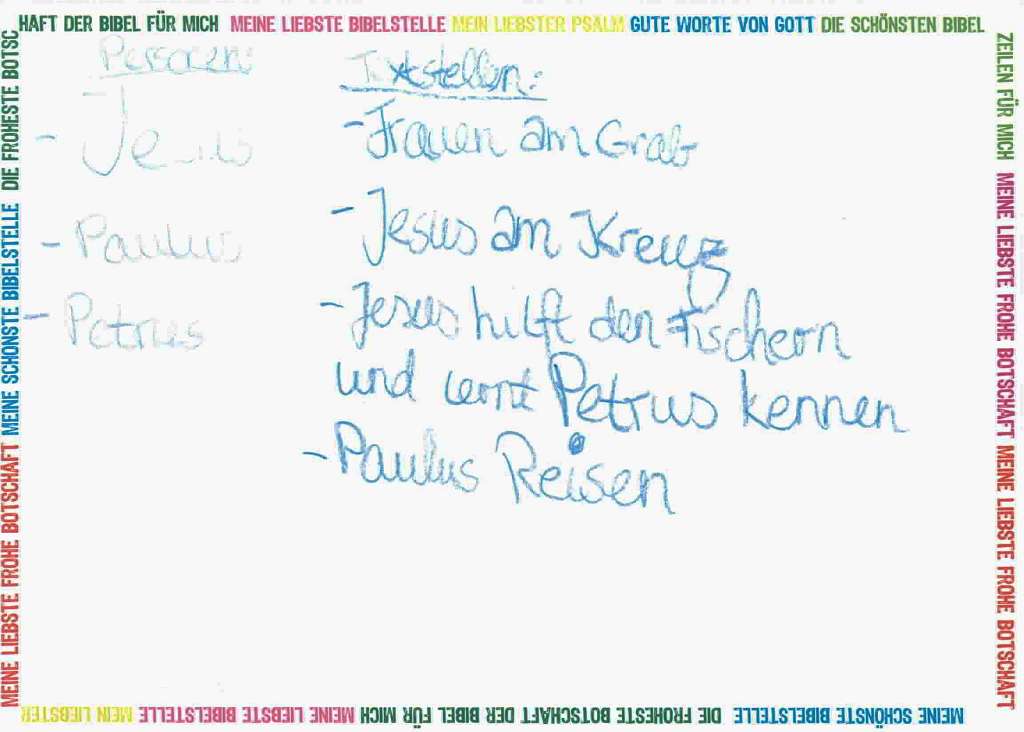 HAFT DER BIBEL FÜR MICH MEINE LIEBSTE BIBELSTELLE MEIN LIEBSTER PSALM GUTE WORTE VON GOTT DIE SCHÖNSTEN BIBEL
ZEILEN FÜR MICH MEINE LIEBSTE FROHE BOTSCHAFT MEINE LIEBSTE FROHE BOTSCHAFT
Personen:
- Jesus
- Paulus
- Petrus
Textstellen:
- Frauen am Grab
- Jesus am Kreuz
- Jesus hilft den Fischern
und lernt Petrus kennen
- Paulus Reisen
MEINE SCHÖNSTE BIBELSTELLE DIE FROHESTE BOTSCHAFT DER BIBEL FÜR MICH MEINE LIEBSTE BIBELSTELLE MEIN LIEBSTER
MEINE LIEBSTE FROHE BOTSCHAFT MEINE SCHÖNSTE BIBELSTELLE DIE FROHESTE BOTSC